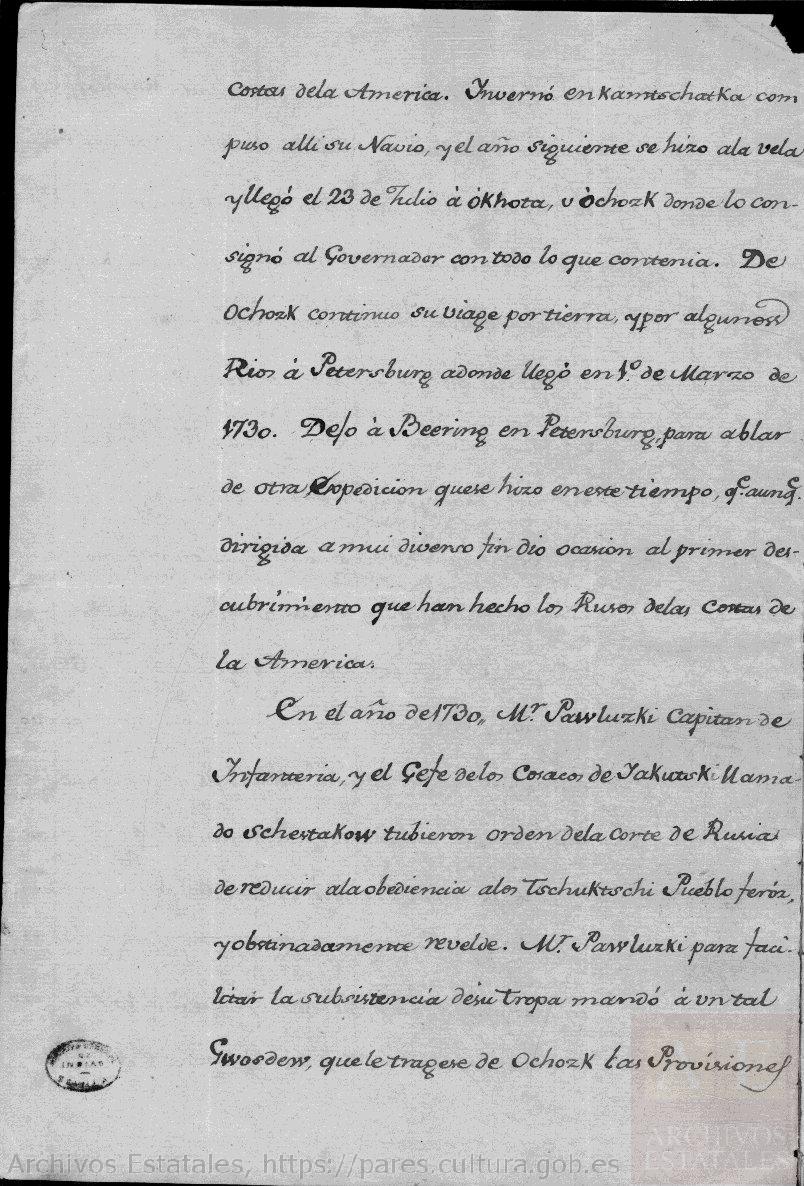 Costas dela America. Invernó en Kamtschatka com
puso alli su Navio, y el año siguiente se hizo ala vela
y llegó el 23 de Julio à òKhota, u òchozK donde lo con-
signó al Governador con todo lo que contenia. De
OchozK continuo su viage por tierra, y por algunos
Rios à Petersburg adonde llegò en 1º. de Marzo de
1730. Dejo à Beering en Petersburg, para ablar
de otra Expedicion que se hizo en este tiempo, q.e aunq.e
dirigida a mui diverso fin dio ocasion al primer des-
cubrimiento que han hecho los Rusos delas Costas de
la America.
En el año de 1730,, M.r Pawluzki Capitan de
Infanteria, y el Gefe delos Cosacos de Jakutski llama-
do Schestakow tubieron orden dela Corte de Rusia
de reducir ala obediencia alos Tschuktschi Pueblo feróz,
y obstinadamente revelde. M.r Pawluzki para faci-
litar la subsistencia de su tropa mandó à un tal
Gwosdew, que le tragese de OchozK las Provisiones
INDIAS
SEVILLA
ARCHIVOS
ESTATALES
Archivos Estatales, https://pares.cultura.gob.es